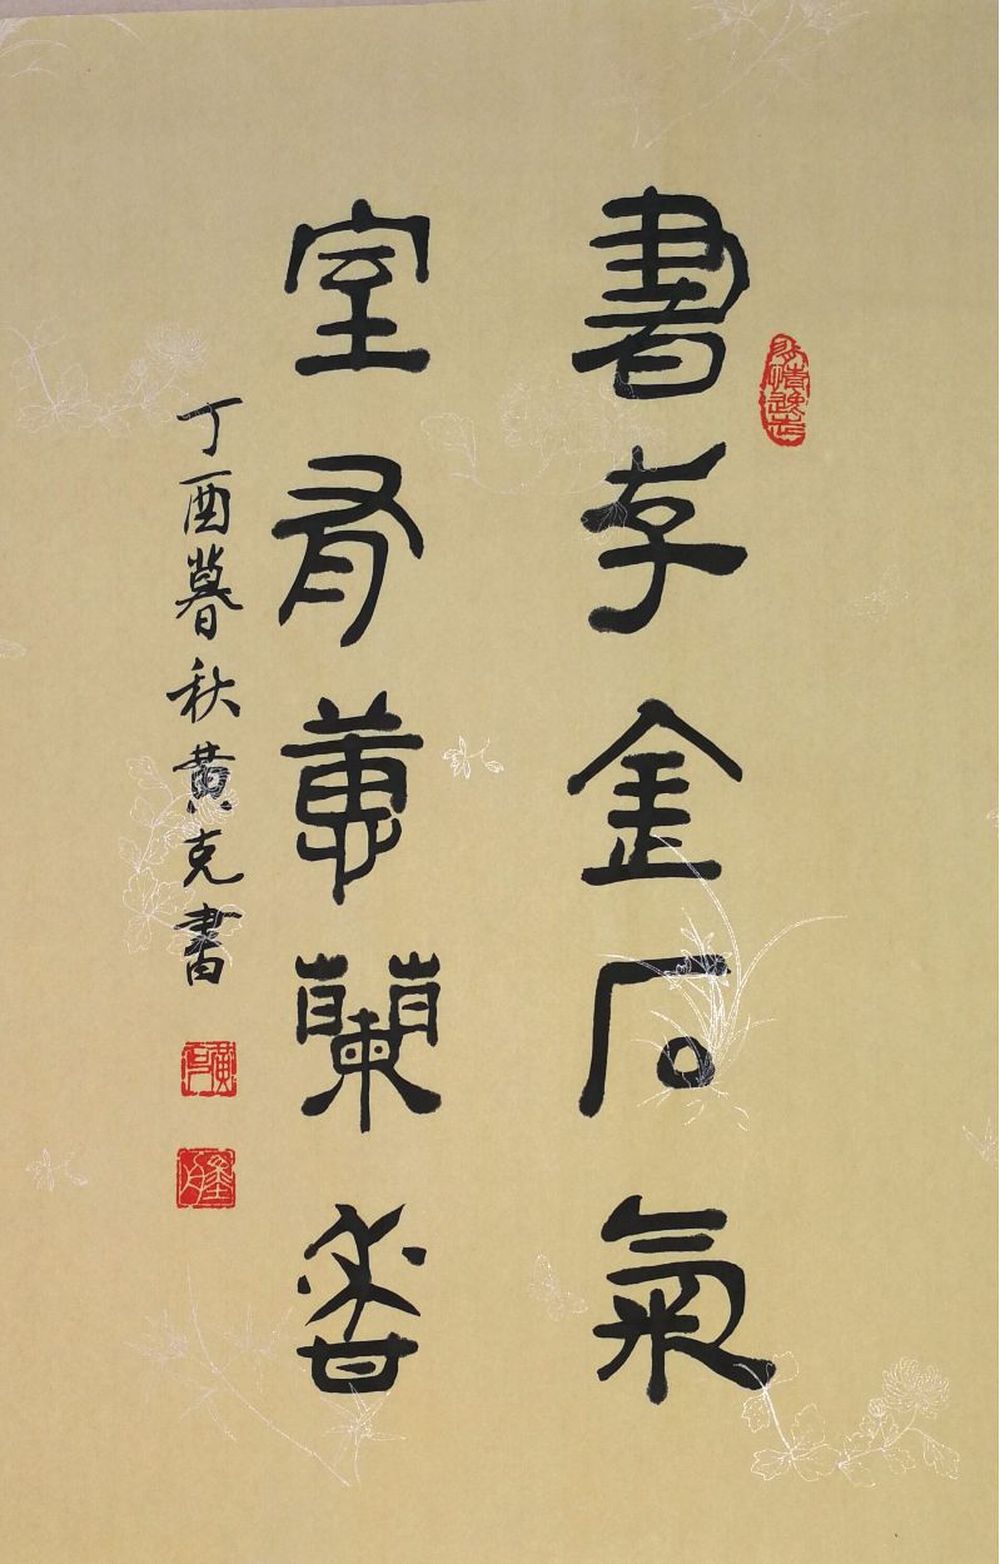 書存金石氣
室有蕙蘭香
丁酉暮秋黄克書